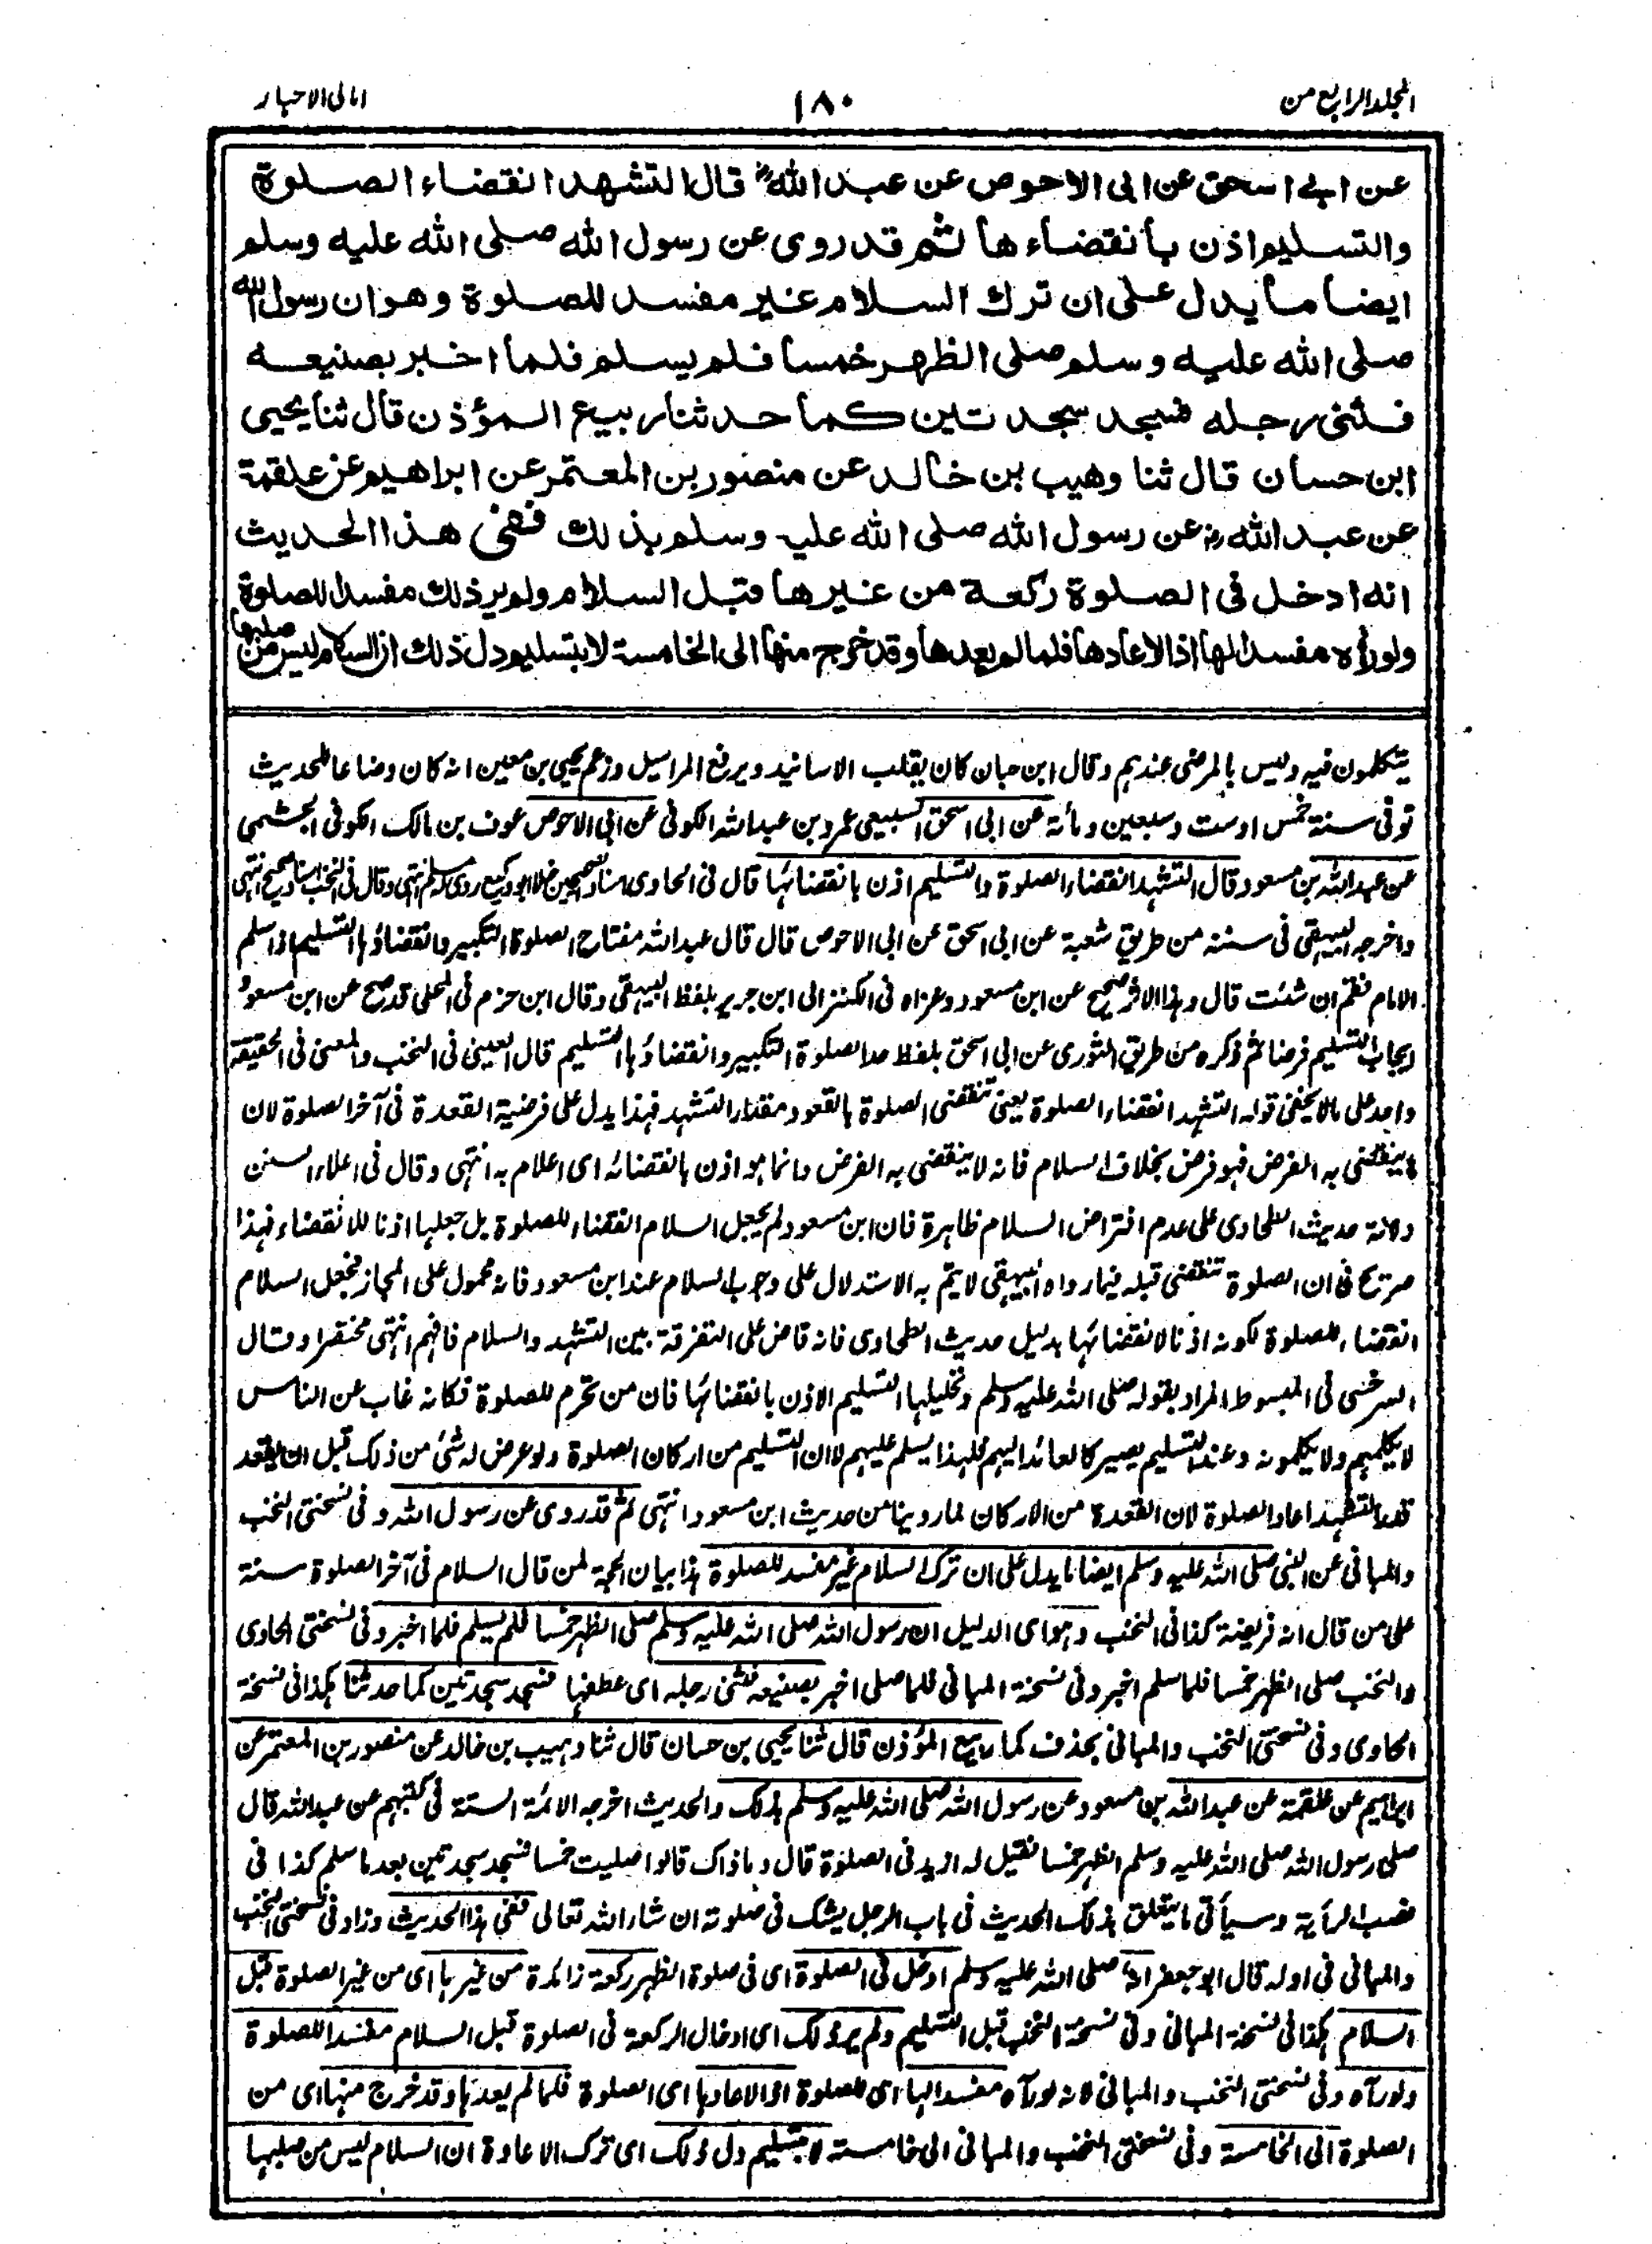 المجلد الرابع من
١٨٠
امانى الاحبار
عن ابى اسحق عن ابى الاحوص عن عبد الله رض قال التشهد انقضاء الصلوة
والتسليم اذن بانقضاءها ثم قد روى عن رسول الله صلى الله عليه وسلم
ايضا ما يدل على ان ترك السلام غير مفسد للصلوة وهو ان رسول الله
صلى الله عليه وسلم صلى الظهر خمسا فلم يسلم فلما اخبر بصنيعه
فثنى رجله فسجد سجدتين كما حدثنا ربيع المؤذن قال ثنا يحيى
ابن حسان قال ثنا وهيب بن خالد عن منصور بن المعتمر عن ابراهيم عن علقمة
عن عبد الله رض عن رسول الله صلى الله عليه وسلم بذلك ففى هذا الحديث
انه ادخل فى الصلوة ركعة من غيرها قبل السلام ولم ير ذلك مفسدا للصلوة
ولو رأه مفسدا لها اذا لاعادها فلما لم يعدها وقد خرج منها الى الخامسة لا بتسليم دل ذلك ان السلام ليس من صلبها
يتكلمون فيه وليس بالمرضى عندهم وقال ابن حبان كان يقلب الاسانيد ويرفع المراسيل وزعم يحيى بن معين انه كان وضاعا للحديث
توفى سنة خمس او ست وسبعين ومأئة عن ابى اسحق السبيعى عمرو بن عبد الله الكوفى عن ابى الاحوص عوف بن مالك الكوفى الجشمى
عن عبد الله بن مسعود قال التشهد انقضاء الصلوة والتسليم اذن بانقضائها قال فى الحاوى اسناد الصحيحين خلا ابو وكيع روى له مسلم انتهى وقال فى النخب اسناده صحيح انتهى
واخرجه البيهقى فى سننه من طريق شعبة عن ابى اسحق عن ابى الاحوص قال قال عبد الله مفتاح الصلوة التكبير وانقضاؤها التسليم اذا سلم
الامام فقم ان شئت قال وهذا الاثر صحيح عن ابن مسعود وعزاه فى الكنز الى ابن جرير بلفظ البيهقى وقال ابن حزم فى المحلى قد صح عن ابن مسعود
ايجاب التسليم فرضا ثم ذكره من طريق الثورى عن ابى اسحق بلفظ حد الصلوة التكبير وانقضاؤها التسليم قال العينى فى النخب والمعنى فى الحقيقة
واحد على ما لا يخفى قوله التشهد انقضاء الصلوة يعنى تنقضى الصلوة بالقعود مقدار التشهد فهذا يدل على فرضية القعدة فى آخر الصلوة لان
ما ينقضى به الفرض فهو فرض بخلاف السلام فانه لا ينقضى به الفرض وانما هو اذن بانقضائه اى اعلام به انتهى وقال فى اعلاء السنن
دلالة حديث الطحاوى على عدم افتراض السلام ظاهرة فان ابن مسعود لم يجعل السلام انقضاء للصلوة بل جعلها اذنا للانقضاء فهذا
صريح فى ان الصلوة تنقضى قبله فيما رواه البيهقى لا يتم به الاستدلال على وجوب السلام عند ابن مسعود فانه محمول على المجاز فجعل السلام
انقضاء للصلوة لكونه اذنا لانقضائها بدليل حديث الطحاوى فانه قاض على التفرقة بين التشهد والسلام فافهم انتهى مختصرا وقال
السرخسى فى المبسوط المراد بقوله صلى الله عليه وسلم وتحليلها التسليم الاذن بانقضائها فان من تحرم للصلوة فكانه غاب عن الناس
لا يكلمهم ولا يكلمونه وعند التسليم يصير كالعائد اليهم فلهذا يسلم عليهم لا ان التسليم من اركان الصلوة ولو عرض له شئ من ذلك قبل ان يقعد
قدر التشهد اعاد الصلوة لان القعدة من الاركان لما روينا من حديث ابن مسعود انتهى ثم قد روى عن رسول الله وفى نسختى النخب
والمبانى عن النبى صلى الله عليه وسلم ايضا ما يدل على ان ترك السلام غير مفسد للصلوة هذا بيان الحجة لمن قال السلام فى آخر الصلوة سنة
على من قال انه فريضة كذا فى النخب وهو اى الدليل ان رسول الله صلى الله عليه وسلم صلى الظهر خمسا فلم يسلم فلما اخبر وفى نسختى الحاوى
والنخب صلى الظهر خمسا فلما سلم اخبر وفى نسخة المبانى فلما صلى اخبر بصنيعه فثنى رجله اى عطفها فسجد سجدتين كما حدثنا هكذا فى نسخة
الحاوى وفى نسختى النخب والمبانى بحذف كما ربيع المؤذن قال ثنا يحيى بن حسان قال ثنا وهيب بن خالد عن منصور بن المعتمر عن
ابراهيم عن علقمة عن عبد الله بن مسعود عن رسول الله صلى الله عليه وسلم بذلك والحديث اخرجه الائمة الستة فى كتبهم عن عبد الله قال
صلى رسول الله صلى الله عليه وسلم الظهر خمسا فقيل له ازيد فى الصلوة قال وما ذاك قالوا صليت خمسا فسجد سجدتين بعد ما سلم كذا فى
نصب الراية وسيأتى ما يتعلق بذلك الحديث فى باب الرجل يشك فى صلوته ان شاء الله تعالى ففى هذا الحديث وزاد فى نسختى النخب
والمبانى فى اوله قال ابو جعفر انه صلى الله عليه وسلم ادخل فى الصلوة اى فى صلوة الظهر ركعة زائدة من غيرها اى من غير الصلوة قبل
السلام هكذا فى نسخة المبانى وفى نسخة النخب قبل التسليم ولم ير ذلك اى ادخال الركعة فى الصلوة قبل السلام مفسدا للصلوة
ولو رآه وفى نسختى النخب والمبانى لانه لو رآه مفسدا لها اى للصلوة اذا لاعادها اى الصلوة فلما لم يعدها وقد خرج منها اى من
الصلوة الى الخامسة وفى نسختى النخب والمبانى الى خامسة لا بتسليم دل ذلك اى ترك الاعادة ان السلام ليس من صلبها